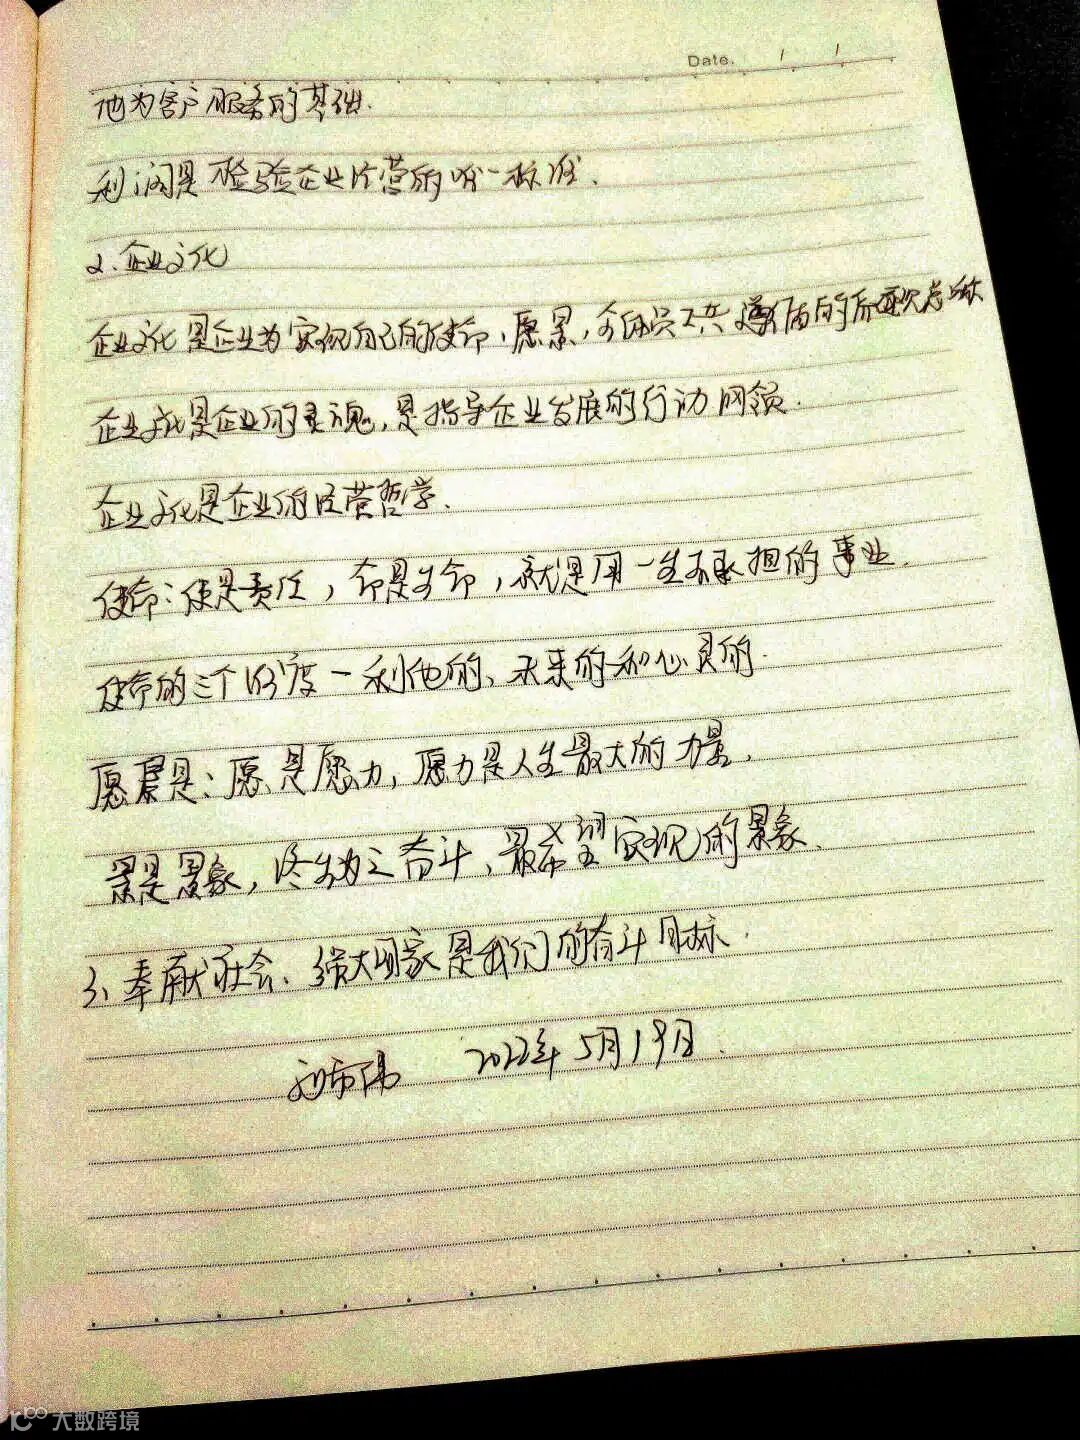 Date. / /
他为客户服务的基础.
利润是检验企业经营的唯一标准.
2.企业文化
企业文化是企业为实现自己的使命,愿景,全体员工共遵循的价值观总和
企业文化是企业的灵魂,是指导企业发展的行动纲领.
企业文化是企业的经营哲学.
使命:使是责任,命是生命,就是用一生承担的事业.
使命的三个 度—利他的、未来的和心灵的.
愿景是:愿是愿力,愿力是人生最大的力量,
景是景象,终生为之奋斗,最希望实现的景象.
3、奉献社会、强大国家是我们的奋斗目标.
2022年5月19日.
大数跨境